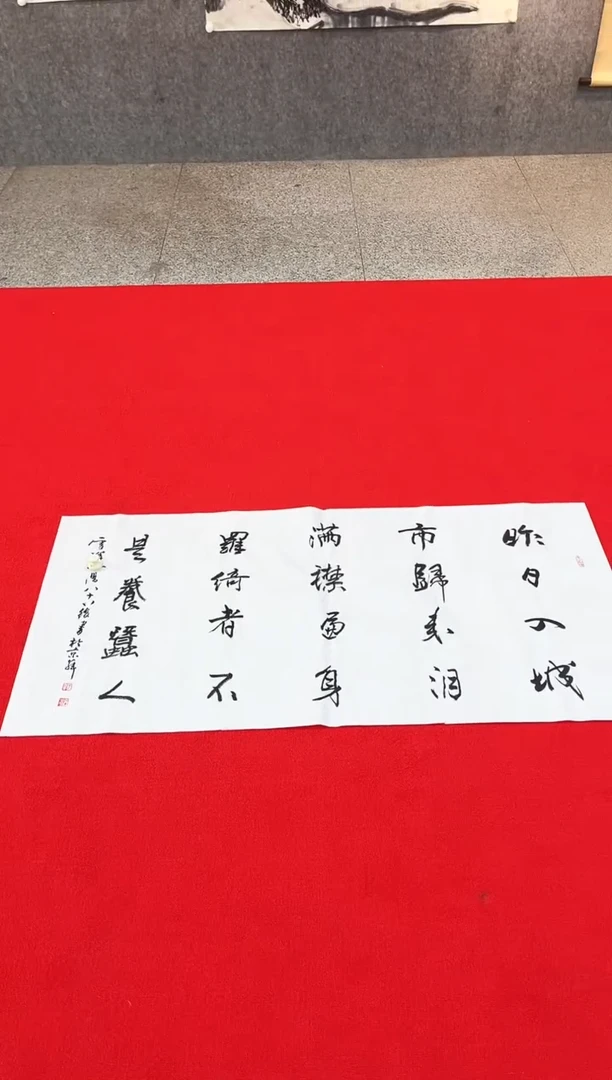 昨日入城
市歸来泪
滿襟遍身
羅綺者不
是養蠶人
八十 書於京